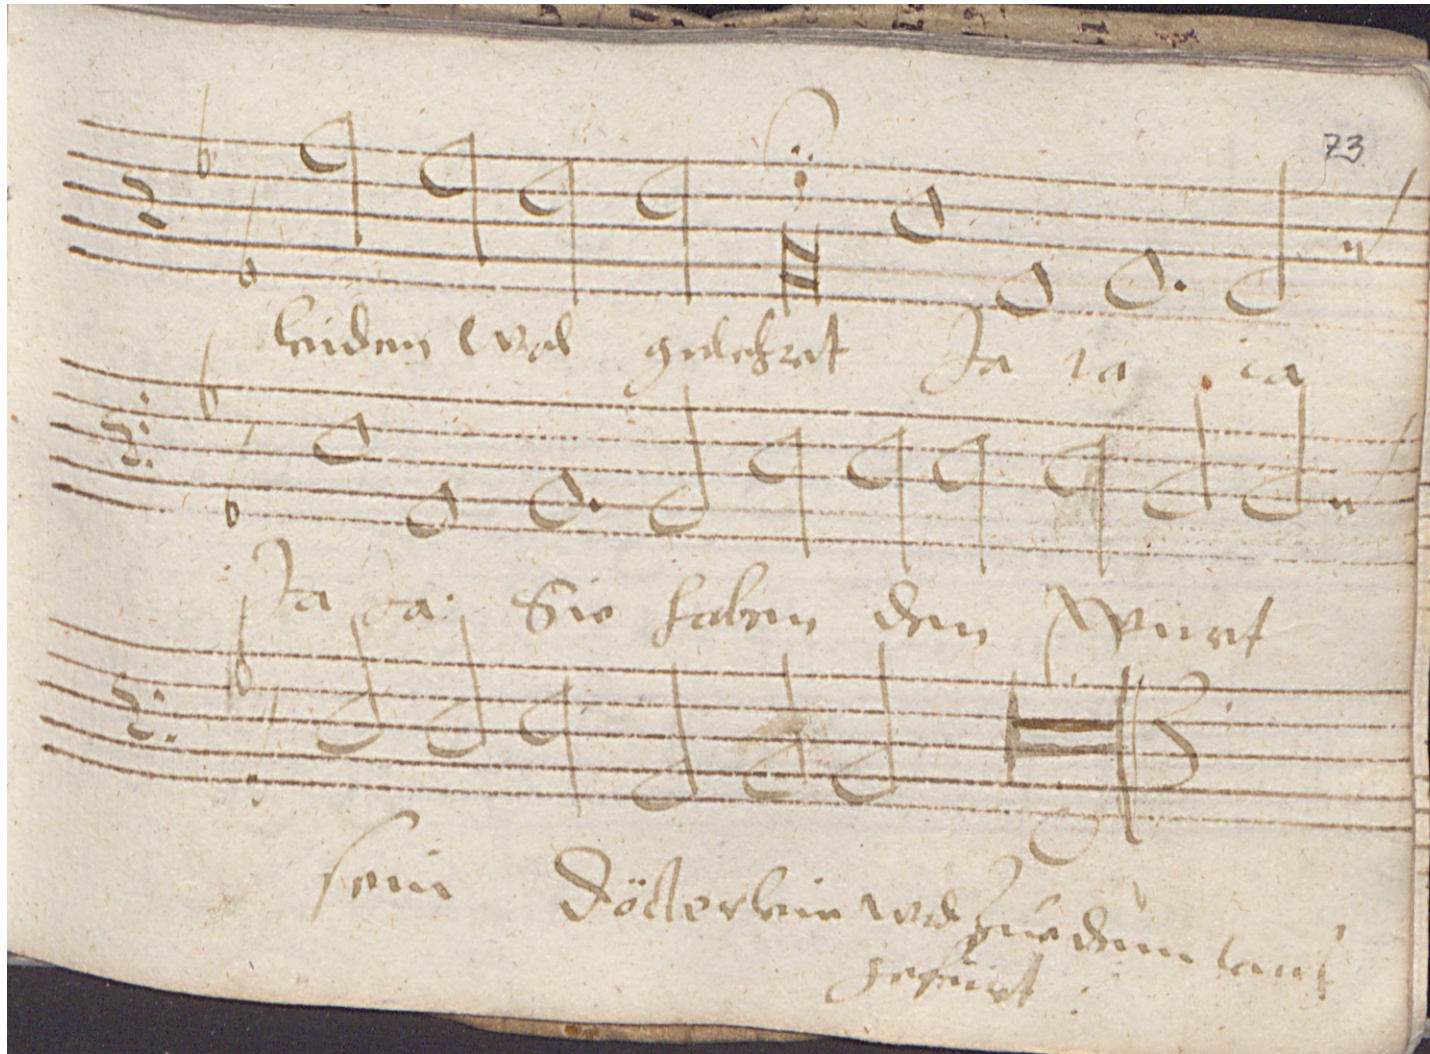 73
leiden wol gelehrt Ja ia ia
Ja ia: Sie haben dem Wuert
sein Döcterlein wol zue dem tantz
gefüert.